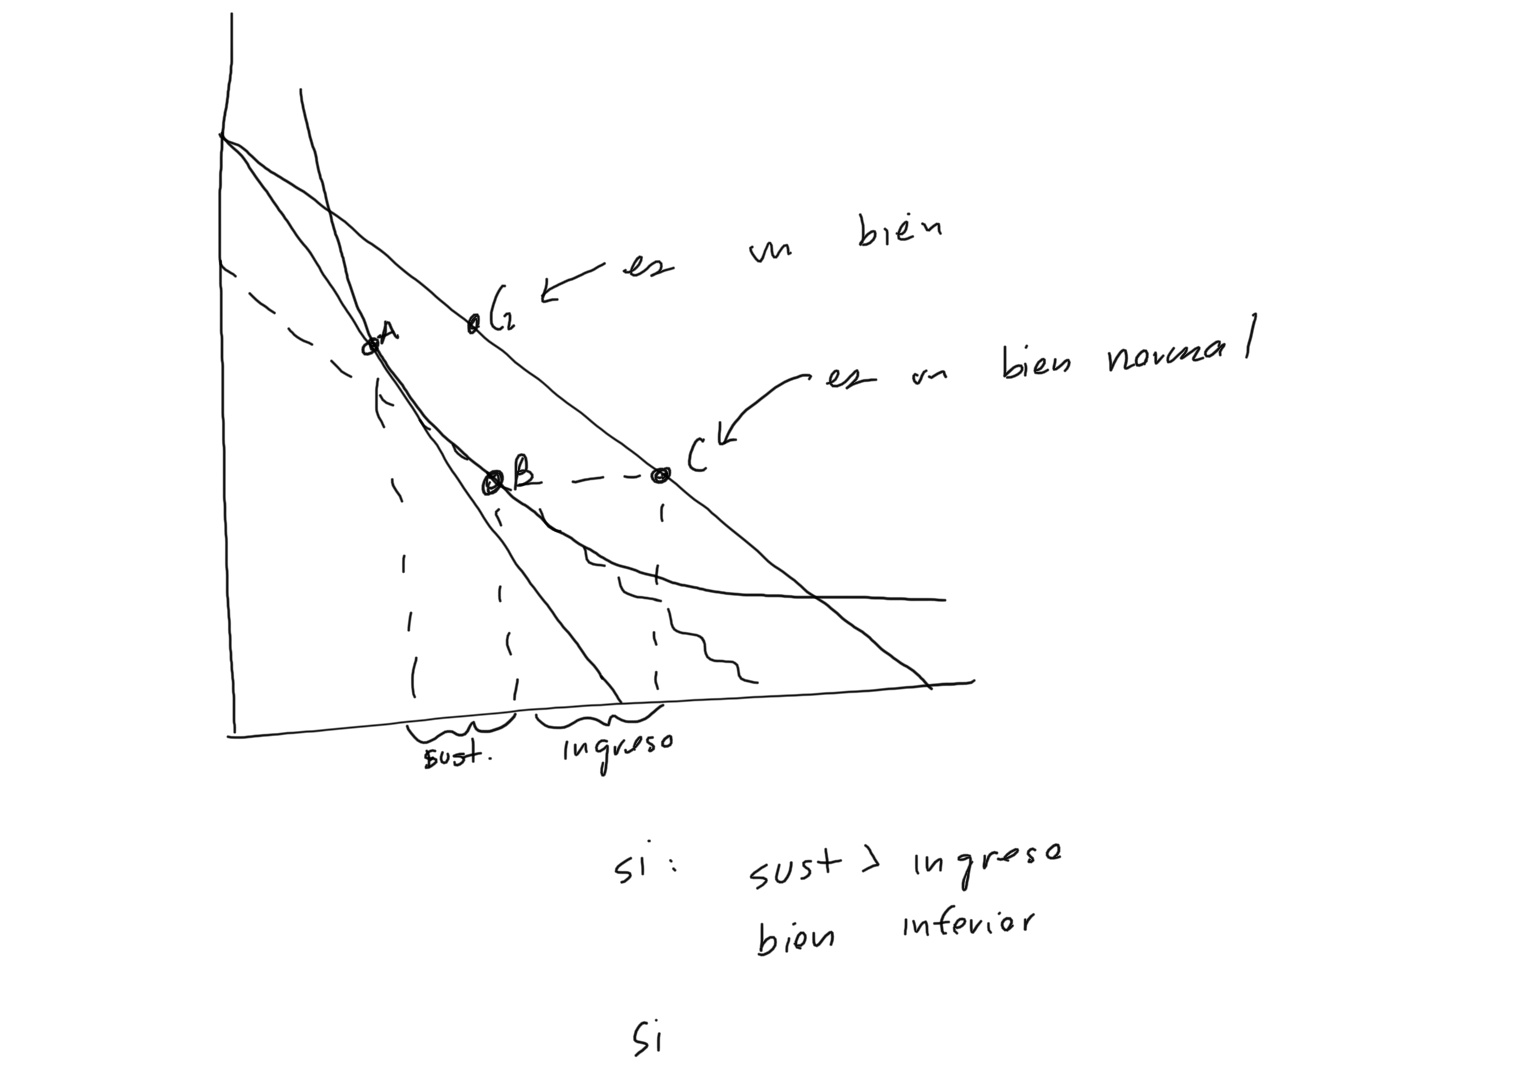 C₂ es un bien
A
es un bien normal
C
B
sust. ingreso
si: sust > ingreso
bien inferior
Si